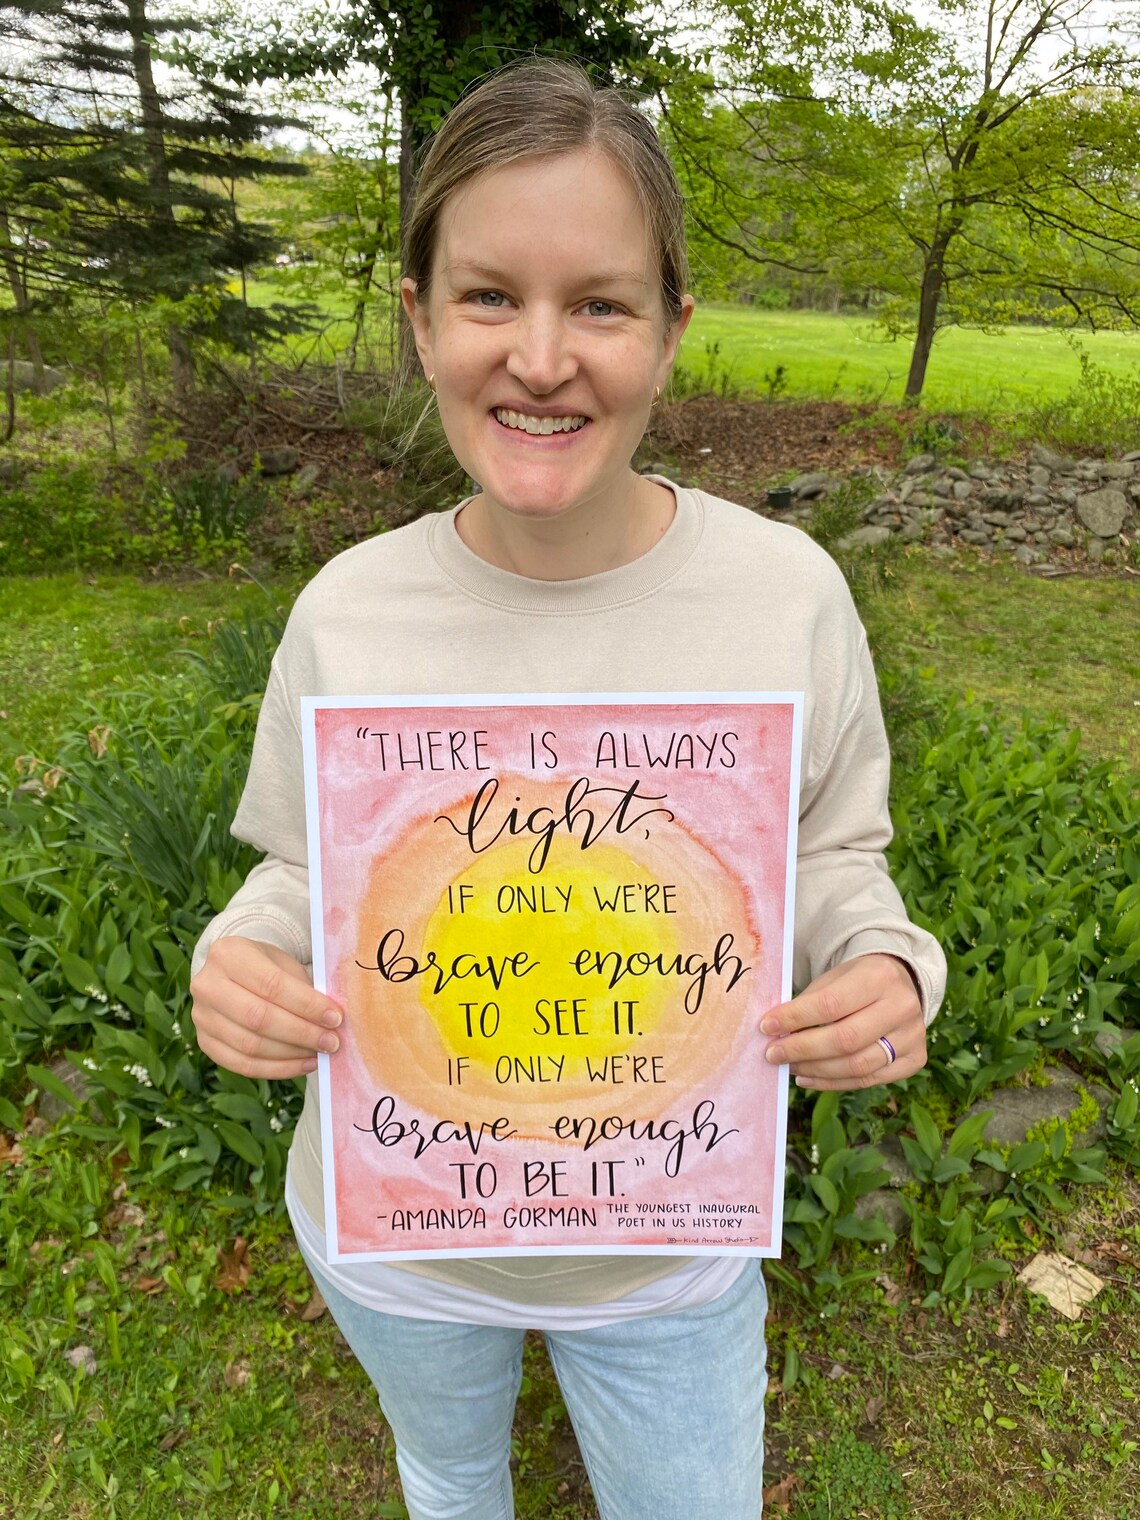 "THERE IS ALWAYS
light,
IF ONLY WE'RE
brave enough
TO SEE IT.
IF ONLY WE'RE
brave enough
TO BE IT."
-AMANDA GORMAN THE YOUNGEST INAUGURAL
POET IN US HISTORY
Kind Arrow Studio